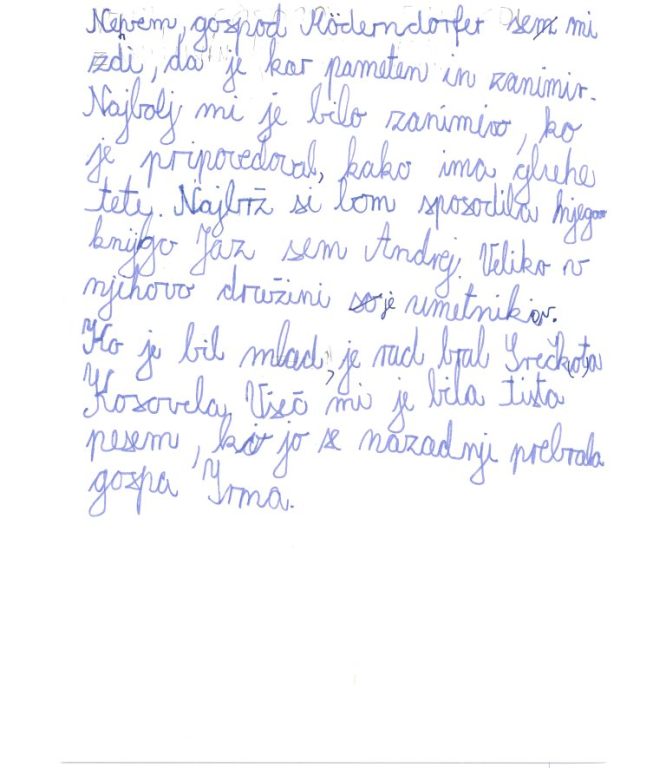 Nevem, gospod Röderndorfer se mi
zdi, da je kar pameten in zanimiv.
Najbolj mi je bilo zanimivo, ko
je pripovedoval, kako ima gluhe
tete. Najbrž si bom sposodila njego
knjigo Jaz sem Andrej. Veliko v
njihovo družini je umetnikov.
Ko je bil mlad, je rad bral Srečkota
Kosovela. Všeč mi je bila tista
pesem, ki jo je nazadnji prebrala
gospa Irma.